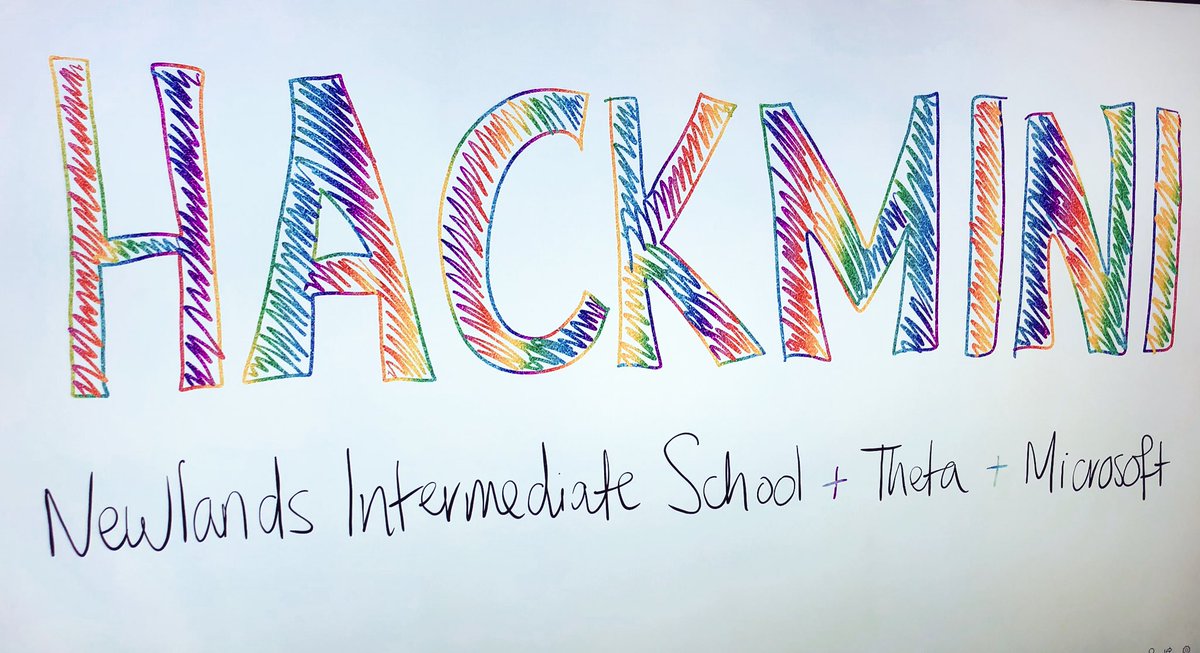 HACKMINI
Newlands Intermediate School + Theta + Microsoft